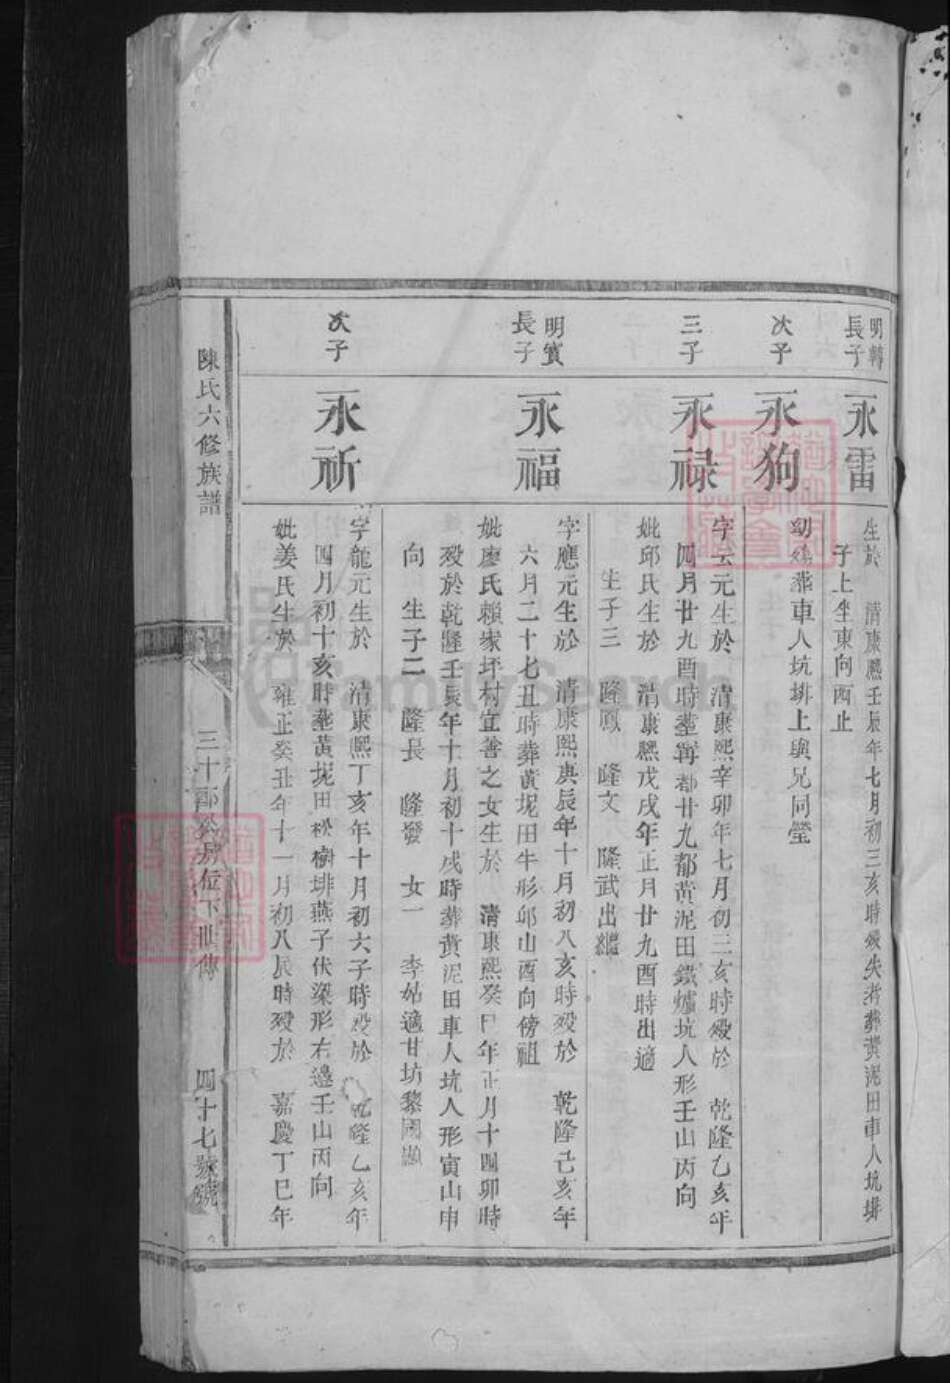 明轉
長子
永雷
生於 清康熙壬辰年七月初三亥時歿失考葬黃泥田車人坑排
子上坐東向西止
次子
永狗
幼殤葬車人坑排上與兄同瑩
三子
永禄
字云元生於 清康熙辛卯年七月初三亥時歿於 乾隆乙亥年
四月廿九酉時葬 都廿九都黃泥田鐵爐坑人形壬山丙向
妣邱氏生於 清康熙戊戌年正月廿九酉時出適
生子三 隆鳳 隆文 隆武出繼
明賓
長子
永福
字應元生於 清康熙庚辰年十月初八亥時歿於 乾隆己亥年
六月二十七丑時葬黃坭田牛形卯山酉向傍祖
妣廖氏賴家坪村宜善之女生於 清康熙癸巳年正月十四卯時
歿於乾隆壬辰年十月初十戌時葬黃泥田車人坑人形寅山申
向 生子二 隆長 隆發 女一 李姑適甘坊黎國
次子
永祈
字龍元生於 清康熙丁亥年十月初六子時歿於 乾隆乙亥年
四月初十亥時葬黃坭田松樹排燕子伏梁形右邊壬山丙向
妣姜氏生於 雍正癸丑年十一月初八辰時歿於 嘉慶丁巳年
陳氏六修族譜
三十郎公房位下世傳
四十七號
FamilySearch